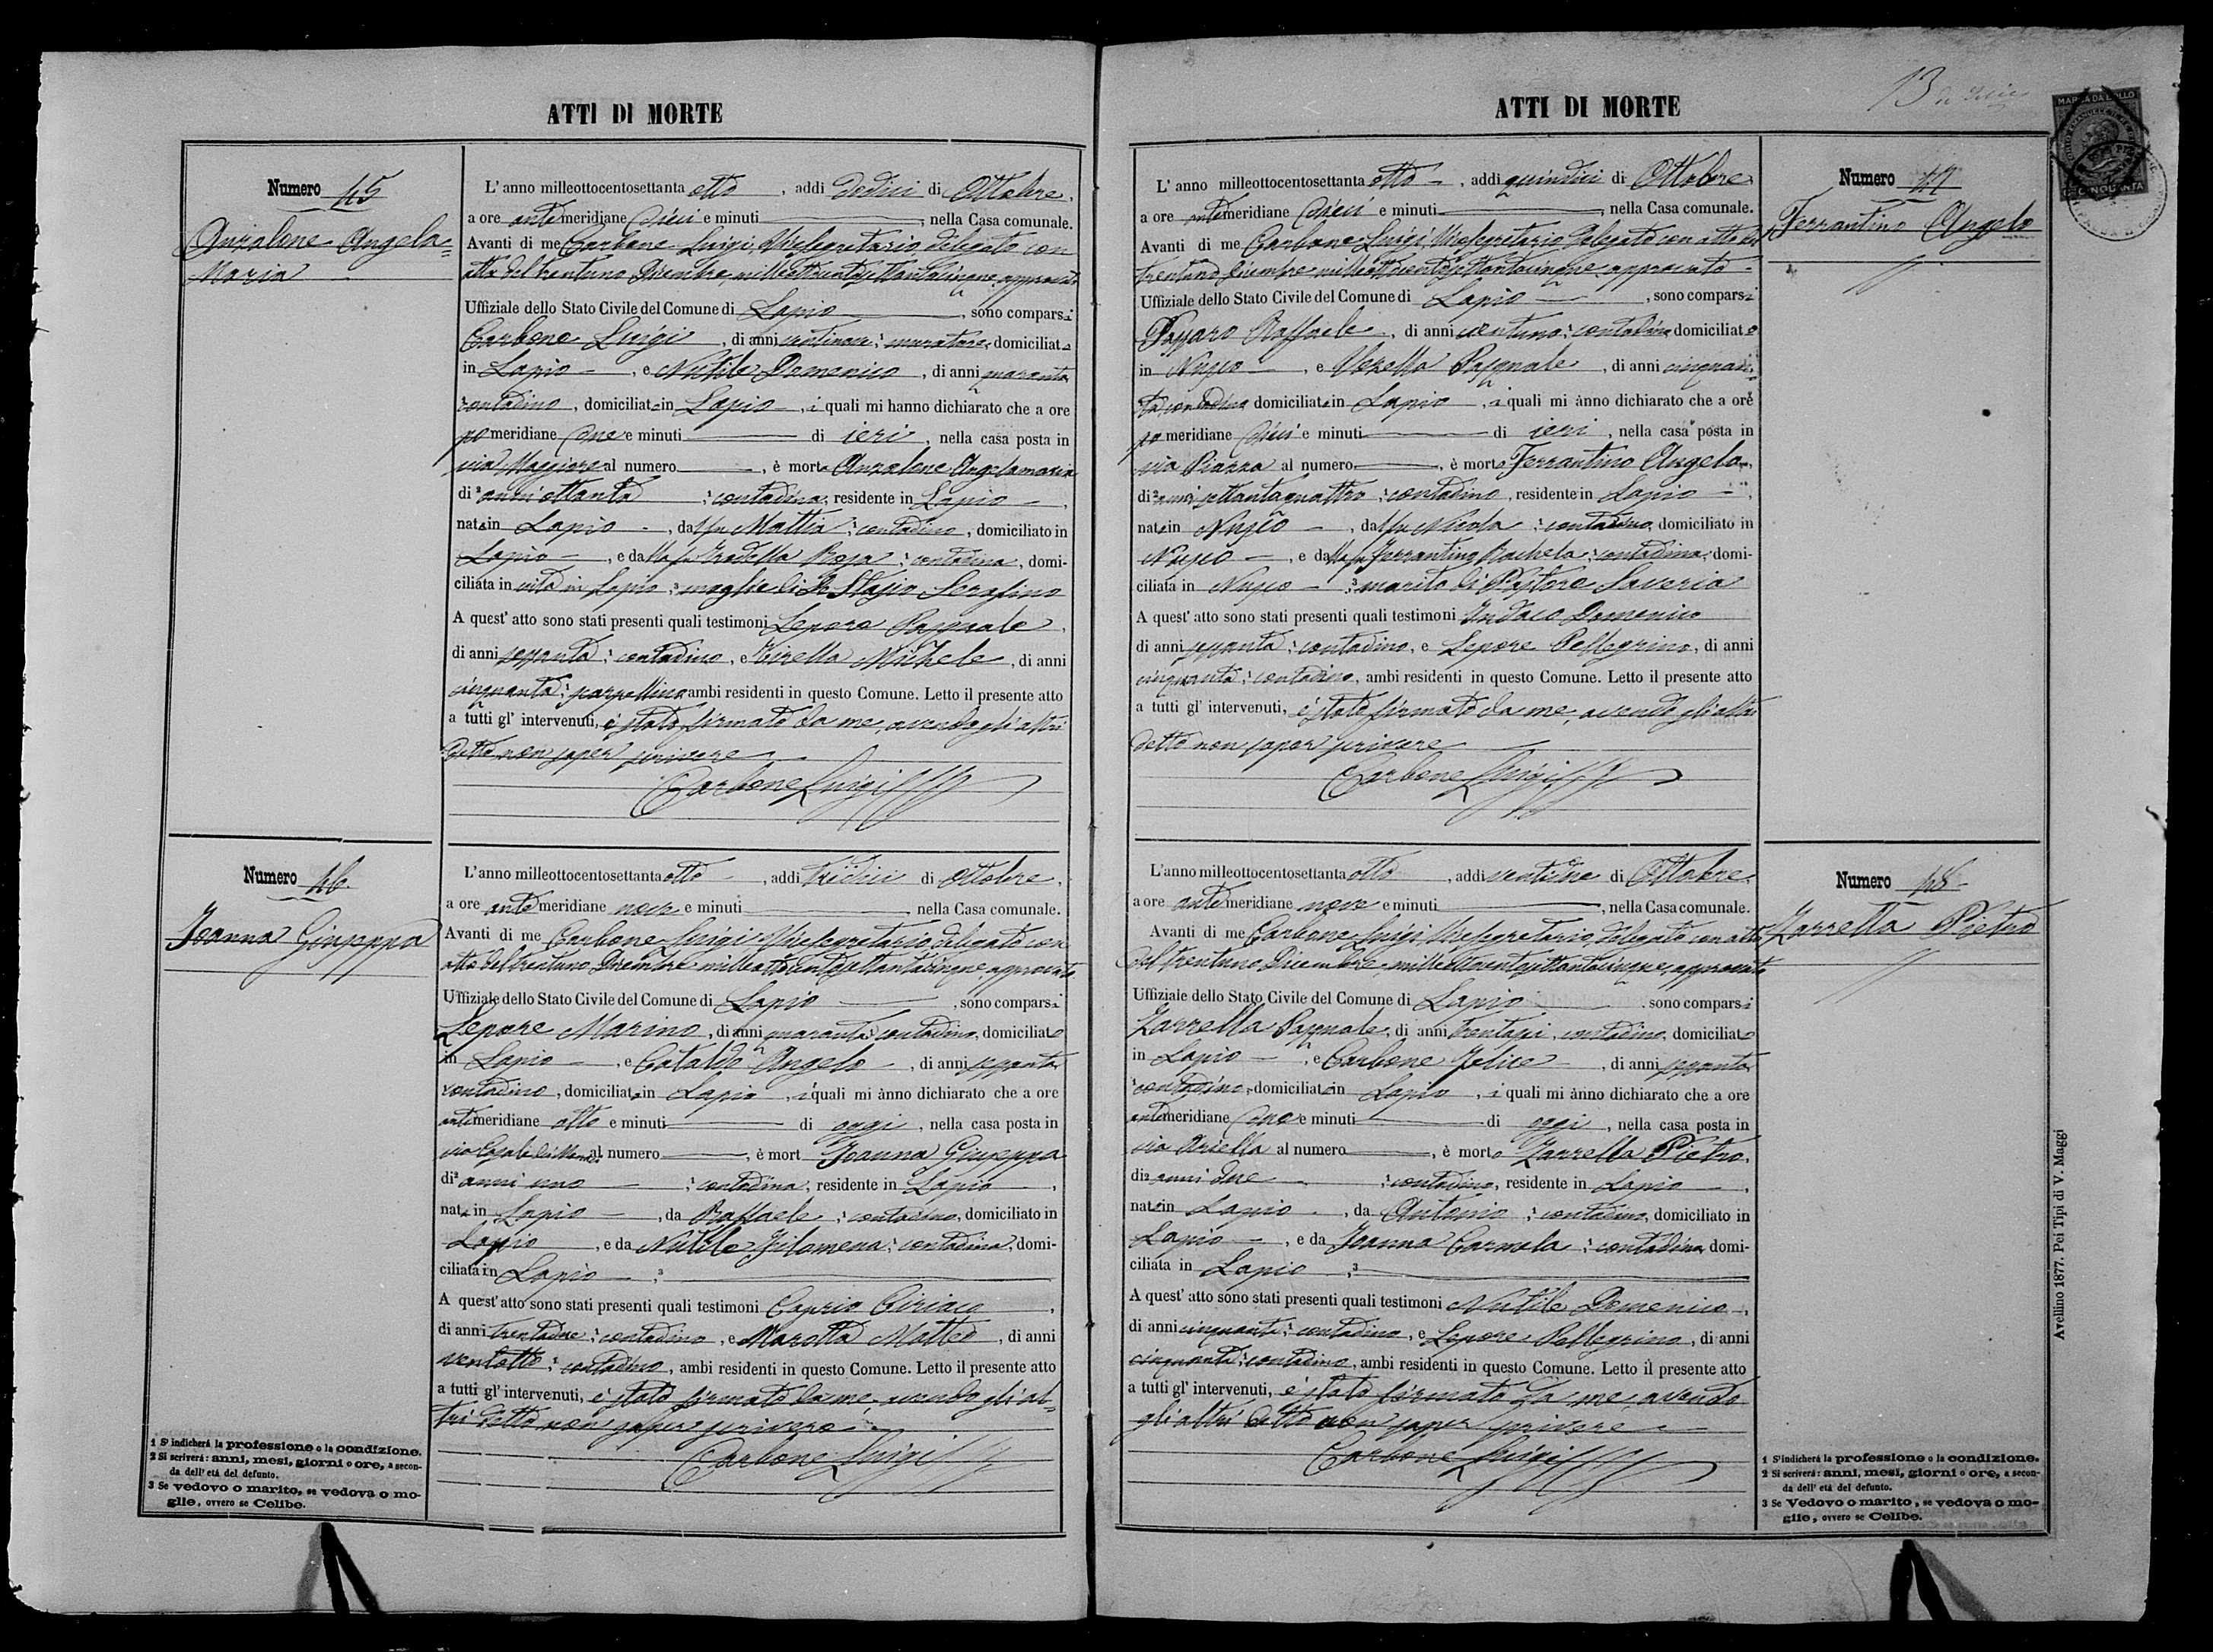 ATTI DI MORTE
Numero 45
Anzalone Angela
Maria
L' anno milleottocentosettanta otto , addi dodici di Ottobre,
a ore antemeridiane dieci e minuti , nella Casa comunale.
Avanti di me Carbone Luigi, Vicesegretario delegato con
atto del trentuno Dicembre milleottocentosettantacinque approvato
Uffiziale dello Stato Civile del Comune di Lapio , sono comparsi
Carbone Luigi , di anni ventinove, muratore, domiciliato
in Lapio , e Nutile Domenico , di anni quaranta
contadino , domiciliato in Lapio , i quali mi hanno dichiarato che a ore
pomeridiane due e minuti di ieri , nella casa posta in
via Maggiore al numero , è morta Anzalone Angelamaria
di 2 anni ottanta contadina, residente in Lapio ,
nata in Lapio , dal fu Mattia contadino , domiciliato in
Lapio , e dalla fu Rosa contadina , domi-
ciliata in vita in Lapio 3 moglie di Serafino
A quest' atto sono stati presenti quali testimoni Lepore Pasquale ,
di anni sessanta contadino , e Michele , di anni
cinquanta scarpellino ambi residenti in questo Comune. Letto il presente atto
a tutti gl' intervenuti, è stato firmato da me, avendo gli altri
detto non saper scrivere
Carbone Luigi
Numero 46
Ioanna Giuseppa
L' anno milleottocentosettanta otto , addi tredici di Ottobre,
a ore antemeridiane nove e minuti nella Casa comunale.
Avanti di me Carbone Luigi Vicesegretario delegato con
atto del trentuno Dicembre milleottocentosettantacinque approvato
Uffiziale dello Stato Civile del Comune di Lapio , sono comparsi
Lepore Marino , di anni quaranta contadino, domiciliato
in Lapio , e Cataldo Angelo , di anni sessanta
contadino , domiciliato in Lapio , i quali mi ànno dichiarato che a ore
antimeridiane otto e minuti di oggi , nella casa posta in
via al numero , è mort Ioanna Giuseppa
di 2 anni uno contadina, residente in Lapio ,
nata in Lapio , da Raffaele contadino, domiciliato in
Lapio , e da Nutile Filomena contadina, domi-
ciliata in Lapio 3
A quest' atto sono stati presenti quali testimoni Caprio Ciriaco ,
di anni trentadue contadino , e Marotta Matteo , di anni
ventotto contadino , ambi residenti in questo Comune. Letto il presente atto
a tutti gl' intervenuti, è stato firmato da me, avendo gli al-
tri detto non saper scrivere
Carbone Luigi
1 S' indicherà la professione o la condizione.
2 Si scriverà: anni, mesi, giorni o ore, a secon-
da dell' età del defunto.
3 Se vedovo o marito, se vedova o mo-
glie, ovvero se Celibe.
ATTI DI MORTE
13
MARCA DA BOLLO
CINQUANTA
Numero 47
Ferrantino Angelo
L' anno milleottocentosettanta otto , addi quindici di Ottobre
a ore antemeridiane dieci e minuti , nella Casa comunale.
Avanti di me Carbone Luigi, Vicesegretario delegato con atto del
trentuno Dicembre milleottocentosettantacinque, approvato
Uffiziale dello Stato Civile del Comune di Lapio , sono comparsi
Raffaele , di anni ventuno contadino domiciliato
in Nusco , e Pasquale , di anni cinquan-
ta, contadino domiciliato in Lapio , i quali mi ànno dichiarato che a ore
pomeridiane dieci e minuti di ieri , nella casa posta in
via Piazza al numero , è morto Ferrantino Angelo,
di 2 anni settantaquattro contadino , residente in Lapio ,
nato in Nusco , dal fu Nicola contadino, domiciliato in
Nusco , e dalla fu Ferrantino Rachela contadina, domi-
ciliata in Nusco 3 marito di Pastore Saveria
A quest' atto sono stati presenti quali testimoni Indaco Domenico
di anni sessanta contadino, e Lepore Pellegrino, di anni
cinquanta contadino, ambi residenti in questo Comune. Letto il presente atto
a tutti gl' intervenuti, è stato firmato da me, avendo gli altri
detto non saper scrivere
Carbone Luigi
Numero 48
Zarrella Pietro
L' anno milleottocentosettanta otto , addi ventidue di Ottobre,
a ore antemeridiane nove e minuti , nella Casa comunale.
Avanti di me Carbone Luigi, Vicesegretario delegato con atto
del trentuno Dicembre milleottocentosettantacinque, approvato
Uffiziale dello Stato Civile del Comune di Lapio sono comparsi
Zarrella Pasquale, di anni trentasei, contadino, domiciliato
in Lapio , e Carbone Felice , di anni sessanta
contadino, domiciliato in Lapio , i quali mi ànno dichiarato che a ore
antemeridiane due e minuti di oggi , nella casa posta in
via Ariella al numero , è morto Zarrella Pietro,
di 2 anni due contadino, residente in Lapio ,
nato in Lapio , da Antonio contadino, domiciliato in
Lapio , e da Ioanna Carmela contadina domi-
ciliata in Lapio 3
A quest' atto sono stati presenti quali testimoni Nutile Domenico ,
di anni cinquanta contadino , e Lepore Pellegrino , di anni
cinquanta contadino , ambi residenti in questo Comune. Letto il presente atto
a tutti gl' intervenuti, è stato firmato da me, avendo
gli altri detto non saper scrivere
Carbone Luigi
1 S' indicherà la professione o la condizione.
2 Si scriverà: anni, mesi, giorni o ore, a secon-
da dell' età del defunto.
3 Se Vedovo o marito, se vedova o mo-
glie, ovvero se Celibe.
Avellino 1877. Pei Tipi di V. Maggi